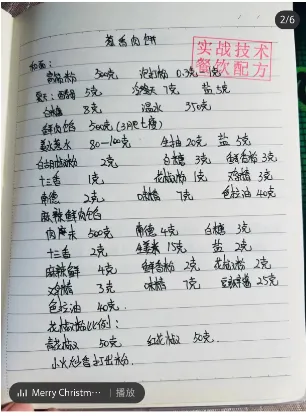 2/6
葱香肉饼
实战技术
餐饮配方
和面：
500g
泡打粉 0.3克
夏天：5克 冷 7克 盐 5克
白糖 8克 温水 350克
鲜肉馅 500g (3肥七瘦)
葱姜水 80-100g 生抽 20克 盐 5克
白胡椒粉 2克 白糖 3克 鲜香粉 3克
十三香 1克 花椒粉 1克 鸡精 3克
2克 味精 7克 色拉油 40克
麻辣鲜肉馅
肉 500克 4克 白糖 3克
十三香 2克 生姜 15克 盐 2克
麻辣鲜 4克 鲜香粉 2克 花椒粉 2克
鸡精 3克 味精 7克 豆瓣酱 25克
色拉油 40克
花椒粉比例：
青花椒 50克 红花椒 50克
小火炒香打出粉
Merry Christm… | 播放